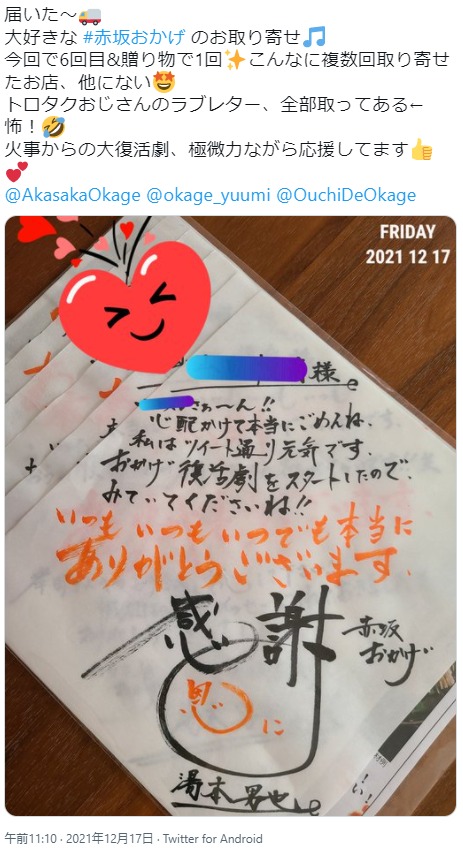 届いた～🚚
大好きな #赤坂おかげ のお取り寄せ🎵
今回で6回目&贈り物で1回✨こんなに複数回取り寄せ
たお店、他にない🤩
トロタクおじさんのラブレター、全部取ってある←
怖！🤣
火事からの大復活劇、極微力ながら応援してます👍
💕
@AkasakaOkage @okage_yuumi @OuchiDeOkage
FRIDAY
2021 12 17
様
さぁ〜ん!!
心配かけて本当にごめんね、
私はツイート通り元気です。
おかげ復活劇をスタートしたので、
みていてくださいね!!
いつもいつもいつでも本当に
ありがとうございます。
感謝
赤坂
おかげ
恩に
湯本男也
午前11:10 · 2021年12月17日 · Twitter for Android